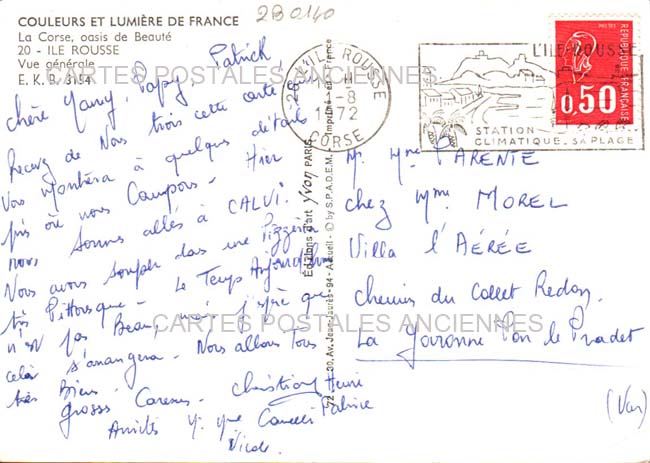 2B0140
COULEURS ET LUMIÈRE DE FRANCE
La Corse, oasis de Beauté
20 - ILE ROUSSE
Vue générale
E. K. B. 3154
CARTES POSTALES ANCIENNES
Chère Mamy, Papy Patrick
Recevez de Nous trois cette carte
Vous montrera à quelques
où nous Campons - Hier
nous sommes allés à CALVI.
Nous avons souper dans une Pizzéria
très Pittoresque - Le Temps Aujourd'hui
n'est pas Beau, mais j'espère que
celà s'arrangera. Nous allons Tous
très Bien.
Grosses Caresses - Christiane Henri
Patrice
Amitiés
20 L'ILE ROUSSE
1-8
1972
CORSE
L'ILE-ROUSSE
STATION
CLIMATIQUE - SA PLAGE
POSTES
RÉPUBLIQUE FRANÇAISE
0,50
Editions d'art Yvon PARIS
© by S.P.A.D.E.M. Imprimé en France
Av. Jean-Jaurès - 94 - Arcueil
M. Mme PARENTE
chez Mme MOREL
Villa l'AÉRÉE
chemin du Collet Redon
La Garonne Par le Pradet
(Var)
CARTES POSTALES ANCIENNES